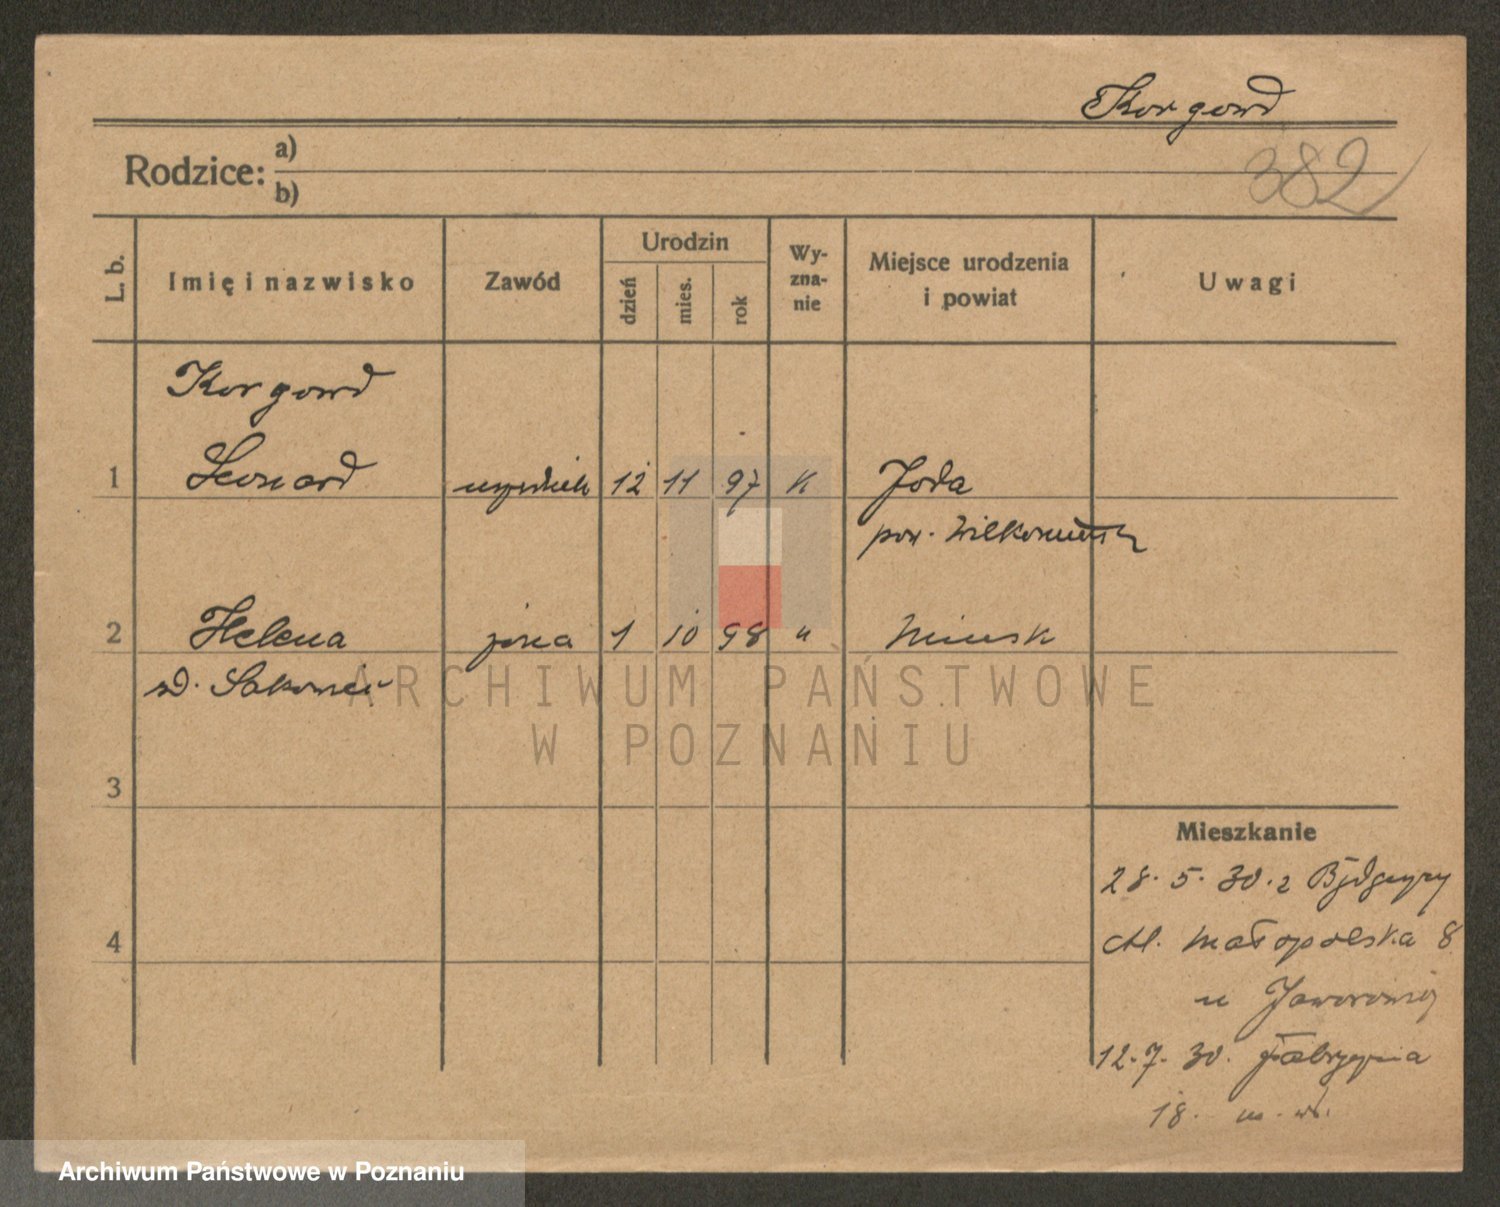 Korgowd
382
Rodzice: a)
b)
L. b.
Imię i nazwisko
Zawód
Urodzin
dzień
mies.
rok
Wy-
zna-
nie
Miejsce urodzenia
i powiat
Uwagi
Korgowd
1 Leonard urzędnik 12 11 97 K Joda
pow.
2 Helena żona 1 10 98 " Mińsk
3
4
Mieszkanie
28. 5. 30. z Bydgoszczy
Małopolska 8
u Jaworowicz
12. 7. 30.
18.
ARCHIWUM PAŃSTWOWE
W POZNANIU
Archiwum Państwowe w Poznaniu